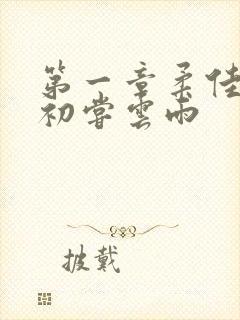 第一章柔佳
初尝雲雨
披戴